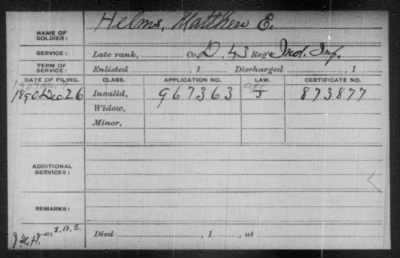 NAME OF SOLDIER: Helms, Matthew E.
SERVICE: Late rank, Co. D, 43 Reg't Ind. Inf.
TERM OF SERVICE: Enlisted , 1 Discharged , 1
DATE OF FILING. CLASS. APPLICATION NO. LAW. CERTIFICATE NO.
1890 Dec 26 Invalid, 967363 J 873877
Widow,
Minor,
ADDITIONAL SERVICES:
REMARKS:
Died , 1 , at